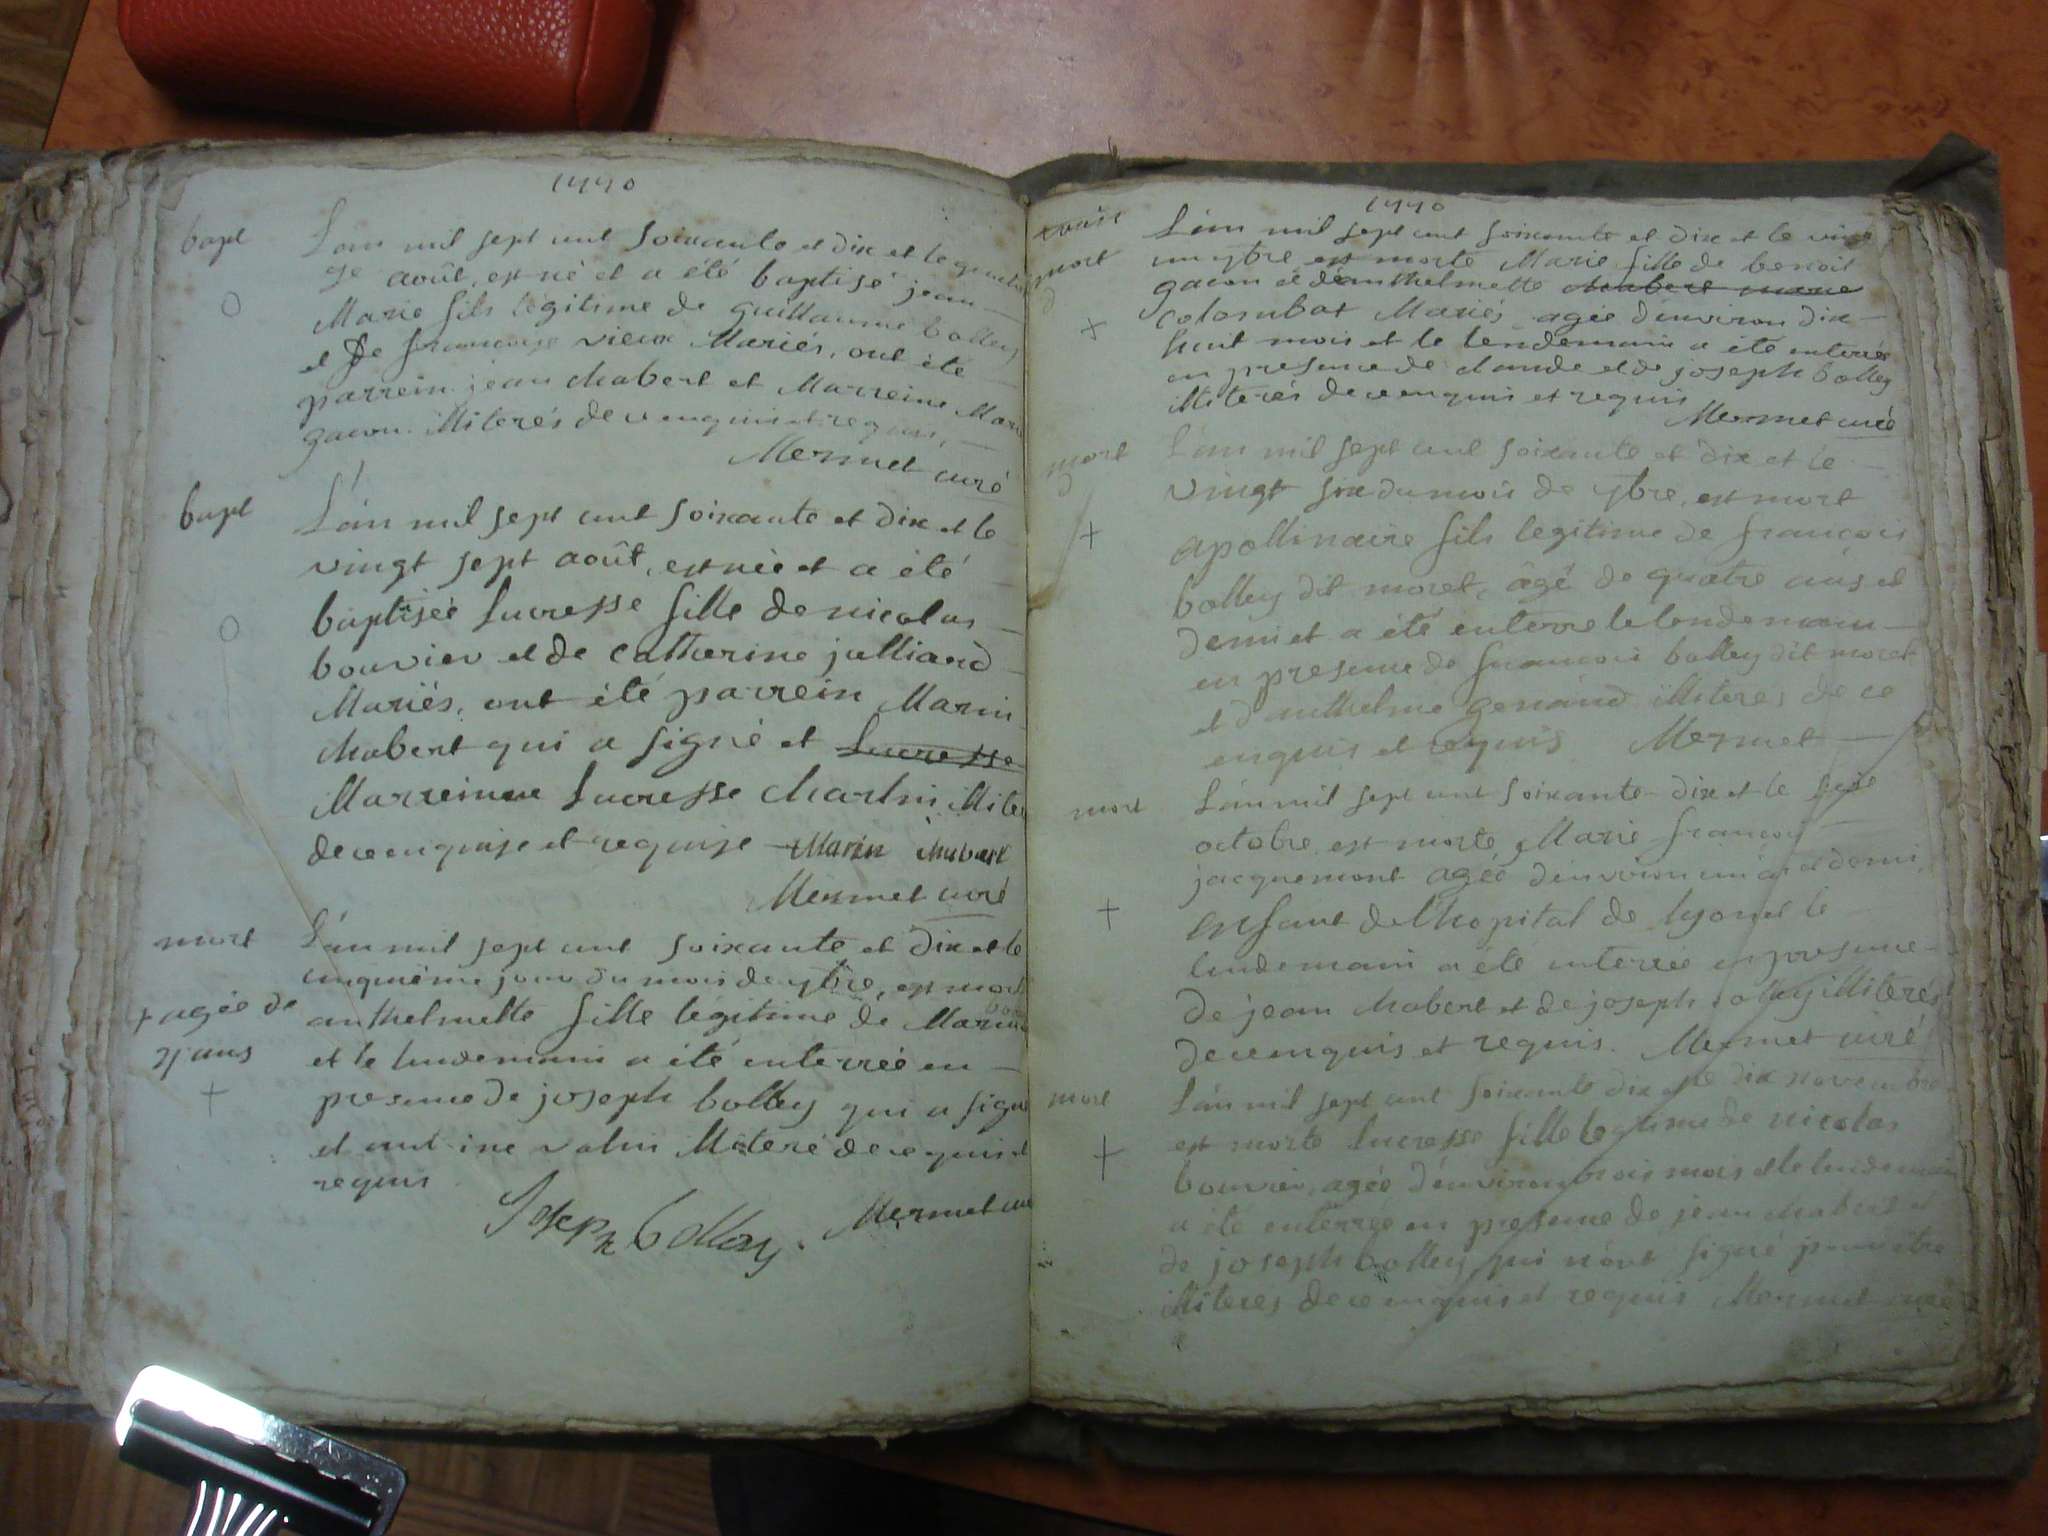 1770
bapt
L'an mil sept cent soixante et dix et le
août, est né et a été baptisé jean
Marie fils legitime de guillaume bolley
et de francoise vieux Mariés, ont été
parrein jean chabert et Marreine Marie
gacon illiterés de ce enquis et requis,
Mermet curé
bapt
L'an mil sept cent soixante et dix et le
vingt sept août, est née et a été
baptisée Lucresse fille de nicolas
bouvier et de catherine julliand
Mariés, ont été parrein Marin
chabert qui a signé et Lucresse
Marreine Lucresse Charlin illiteré
de ce enquise et requise Marin chabert
Mermet curé
mort
L'an mil sept cent soixante et dix et le
cinquième jour du mois de 7bre, est morte
+ agée de
anthelmette fille légitime de Marin
ans
et le lendemain a été enterrée en
presence de joseph bolley qui a signé
et illiteré de ce enquis et
requis
Joseph bolley. Mermet curé
1770
mort
L'an mil sept cent soixante et dix et le vingt
un 7bre est morte Marie fille de benoit
gacon et d'anthelmette chabert marie
colombat Mariés agée d'environ dix
huit mois et le lendemain a été enterrée
en presence de claude et de joseph bolley
illiterés de ce enquis et requis
Mermet curé
mort
L'an mil sept cent soixante et dix et le
vingt six du mois de 7bre, est mort
apollinaire fils legitime de francois
bolley dit moret, âgé de quatre ans et
demi et a été enterré le lendemain
en presence de francois bolley dit moret
et d'anthelme genand illiterés de ce
enquis et requis Mermet
mort
L'an mil sept cent soixante dix et le seize
octobre est morte Marie francoise
jacquemont agée d'environ un an et demi,
enfant de l'hopital de lyon et le
lendemain a été enterrée en presence
de jean chabert et de joseph bolley illiterés
de ce enquis et requis. Mermet curé
mort
L'an mil sept cent soixante dix et le dix novembre
est morte Lucresse fille legitime de nicolas
bouvier, agée d'environ trois mois et le lendemain
a été enterrée en presence de jean chabert et
de joseph bolley qui n'ont signé pour être
illiterés de ce enquis et requis Mermet curé